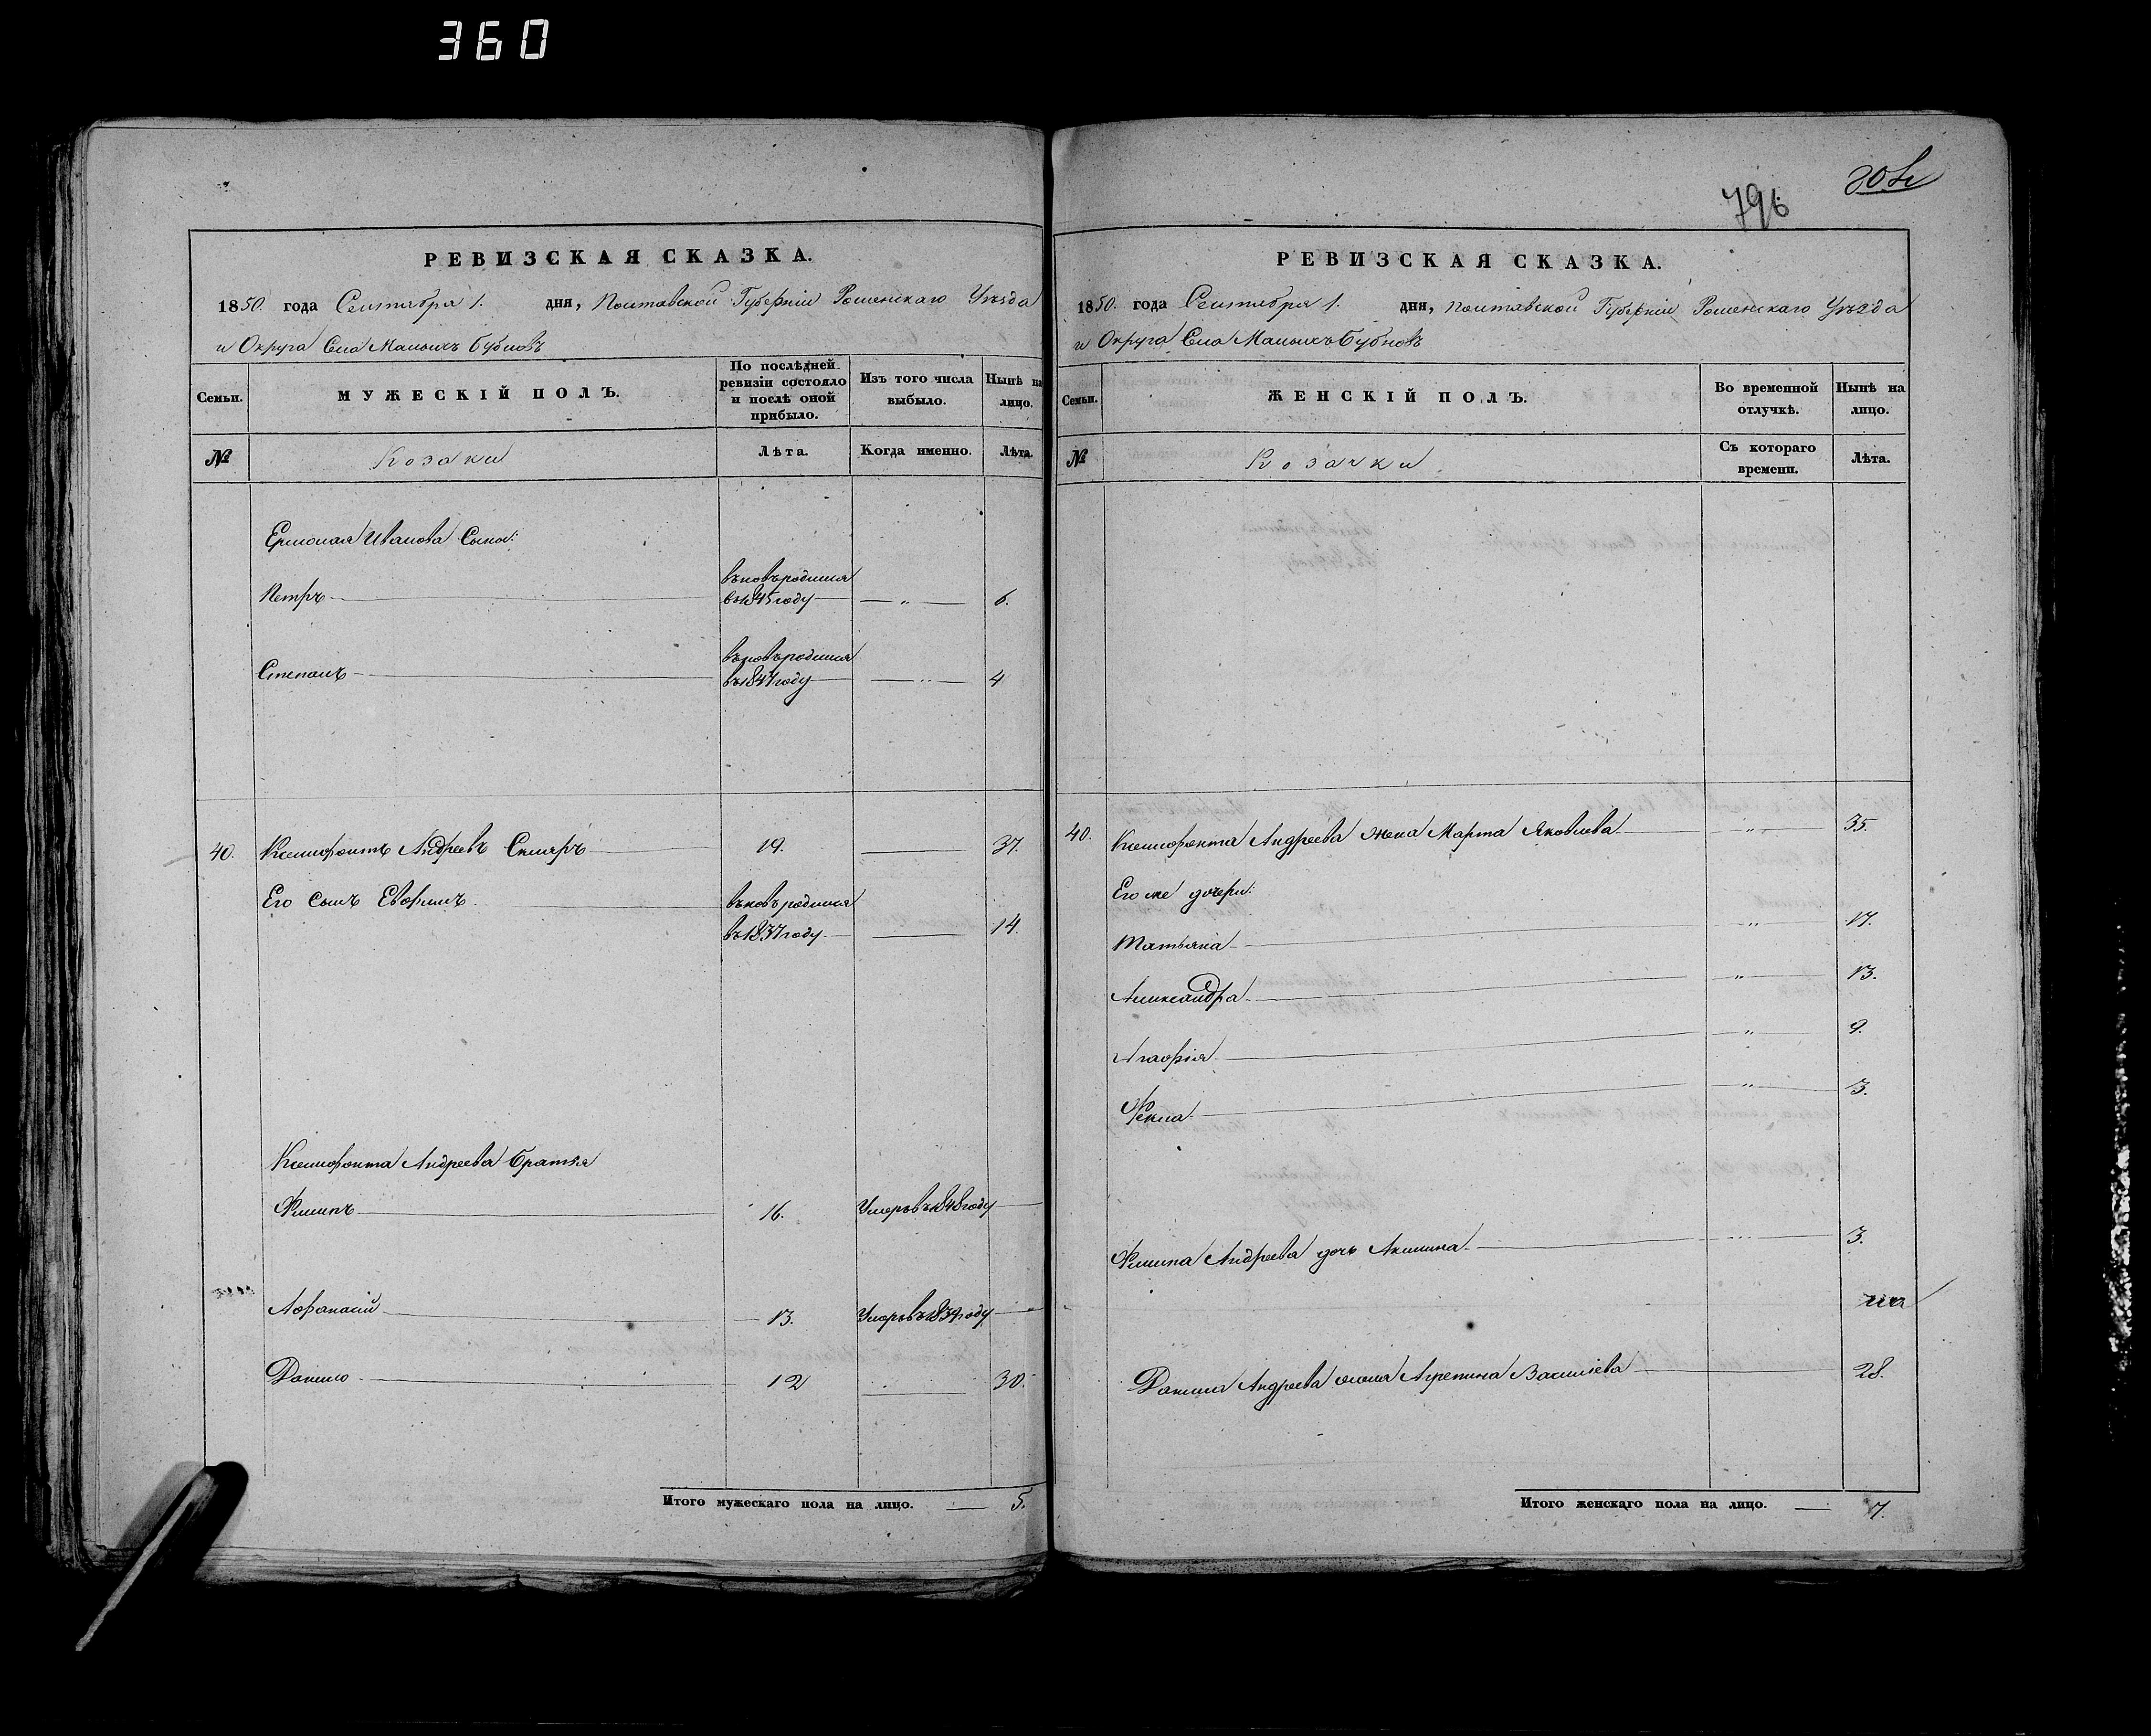 360
796
РЕВИЗСКАЯ СКАЗКА.
1850. года Сентября 1. дня, Полтавской Губерніи Роменскаго Уѣзда
и Округа Села Малыхъ Бубновъ
Семьи.
МУЖЕСКІЙ ПОЛЪ.
По послѣдней ревизіи состояло и послѣ оной прибыло.
Изъ того числа выбыло.
Нынѣ на лицо.
№
Козаки
Лѣта.
Когда именно.
Лѣта.
Ермолая Иванова Сыны:
Петръ вновьродился
въ 1845 году " 6.
Степанъ вновьродился
въ 1847 году " 4
40. Ксенофонтъ Андреевъ Скляръ 19. 37.
Его сынъ Евфимъ вновьродился
въ 1837 году 14.
Ксенофонта Андреева братья
Филипъ 16. Умеръ въ 1848 году
Афанасій 13. Умеръ въ 1839 году
Данило 12 30.
Итого мужескаго пола на лицо. 5.
РЕВИЗСКАЯ СКАЗКА.
1850. года Сентября 1. дня, Полтавской Губерніи Роменскаго Уѣзда
и Округа Села Малыхъ Бубновъ
Семьи.
ЖЕНСКІЙ ПОЛЪ.
Во временной отлучкѣ.
Нынѣ на лицо.
№
Козачки
Съ котораго времени.
Лѣта.
40. Ксенофонта Андреева жена Марта Яковлева " 35.
Его же дочери:
Татьяна " 17.
Александра " 13.
Агафія " 9.
Фекла " 3.
Филипа Андреева дочь Акилина " 3.
Данила Андреева жена Агрепина Василіева 28.
Итого женскаго пола на лицо. 7.